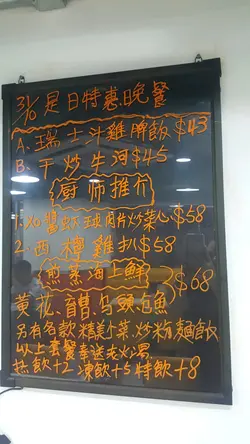 31/10 是日特惠晚餐
A. 瑞士汁雞脾飯 $43
B. 干炒牛河 $45
厨师推介
1. XO醬蝦球肉片炒菜心 $58
2. 西檸雞扒 $58
煎蒸海上鮮
黃花、烏頭 $68
另有各款精美小菜、炒粉麵飯
以上套餐奉送老火湯
热飲+2 凍飲+5 特飲+8